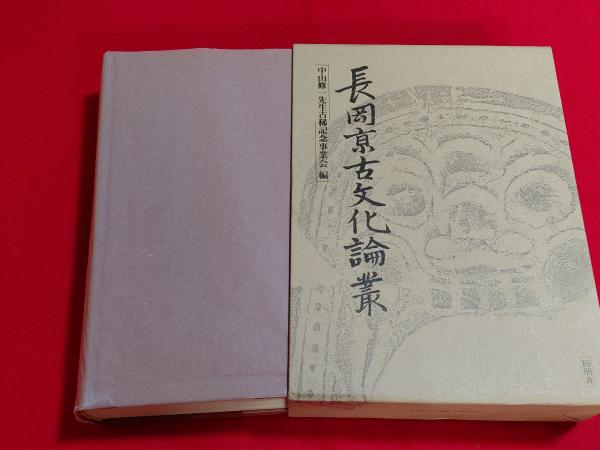 長岡京古文化論叢
中山修一先生古稀記念事業会 編
同朋舎